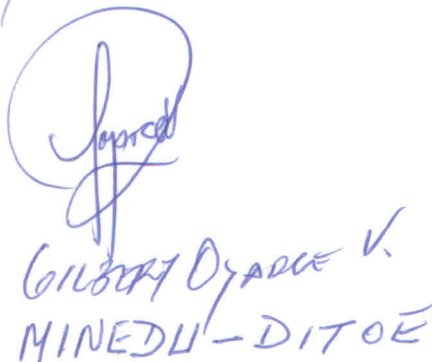 GILBERT OYARCE V.
MINEDU - DITOE